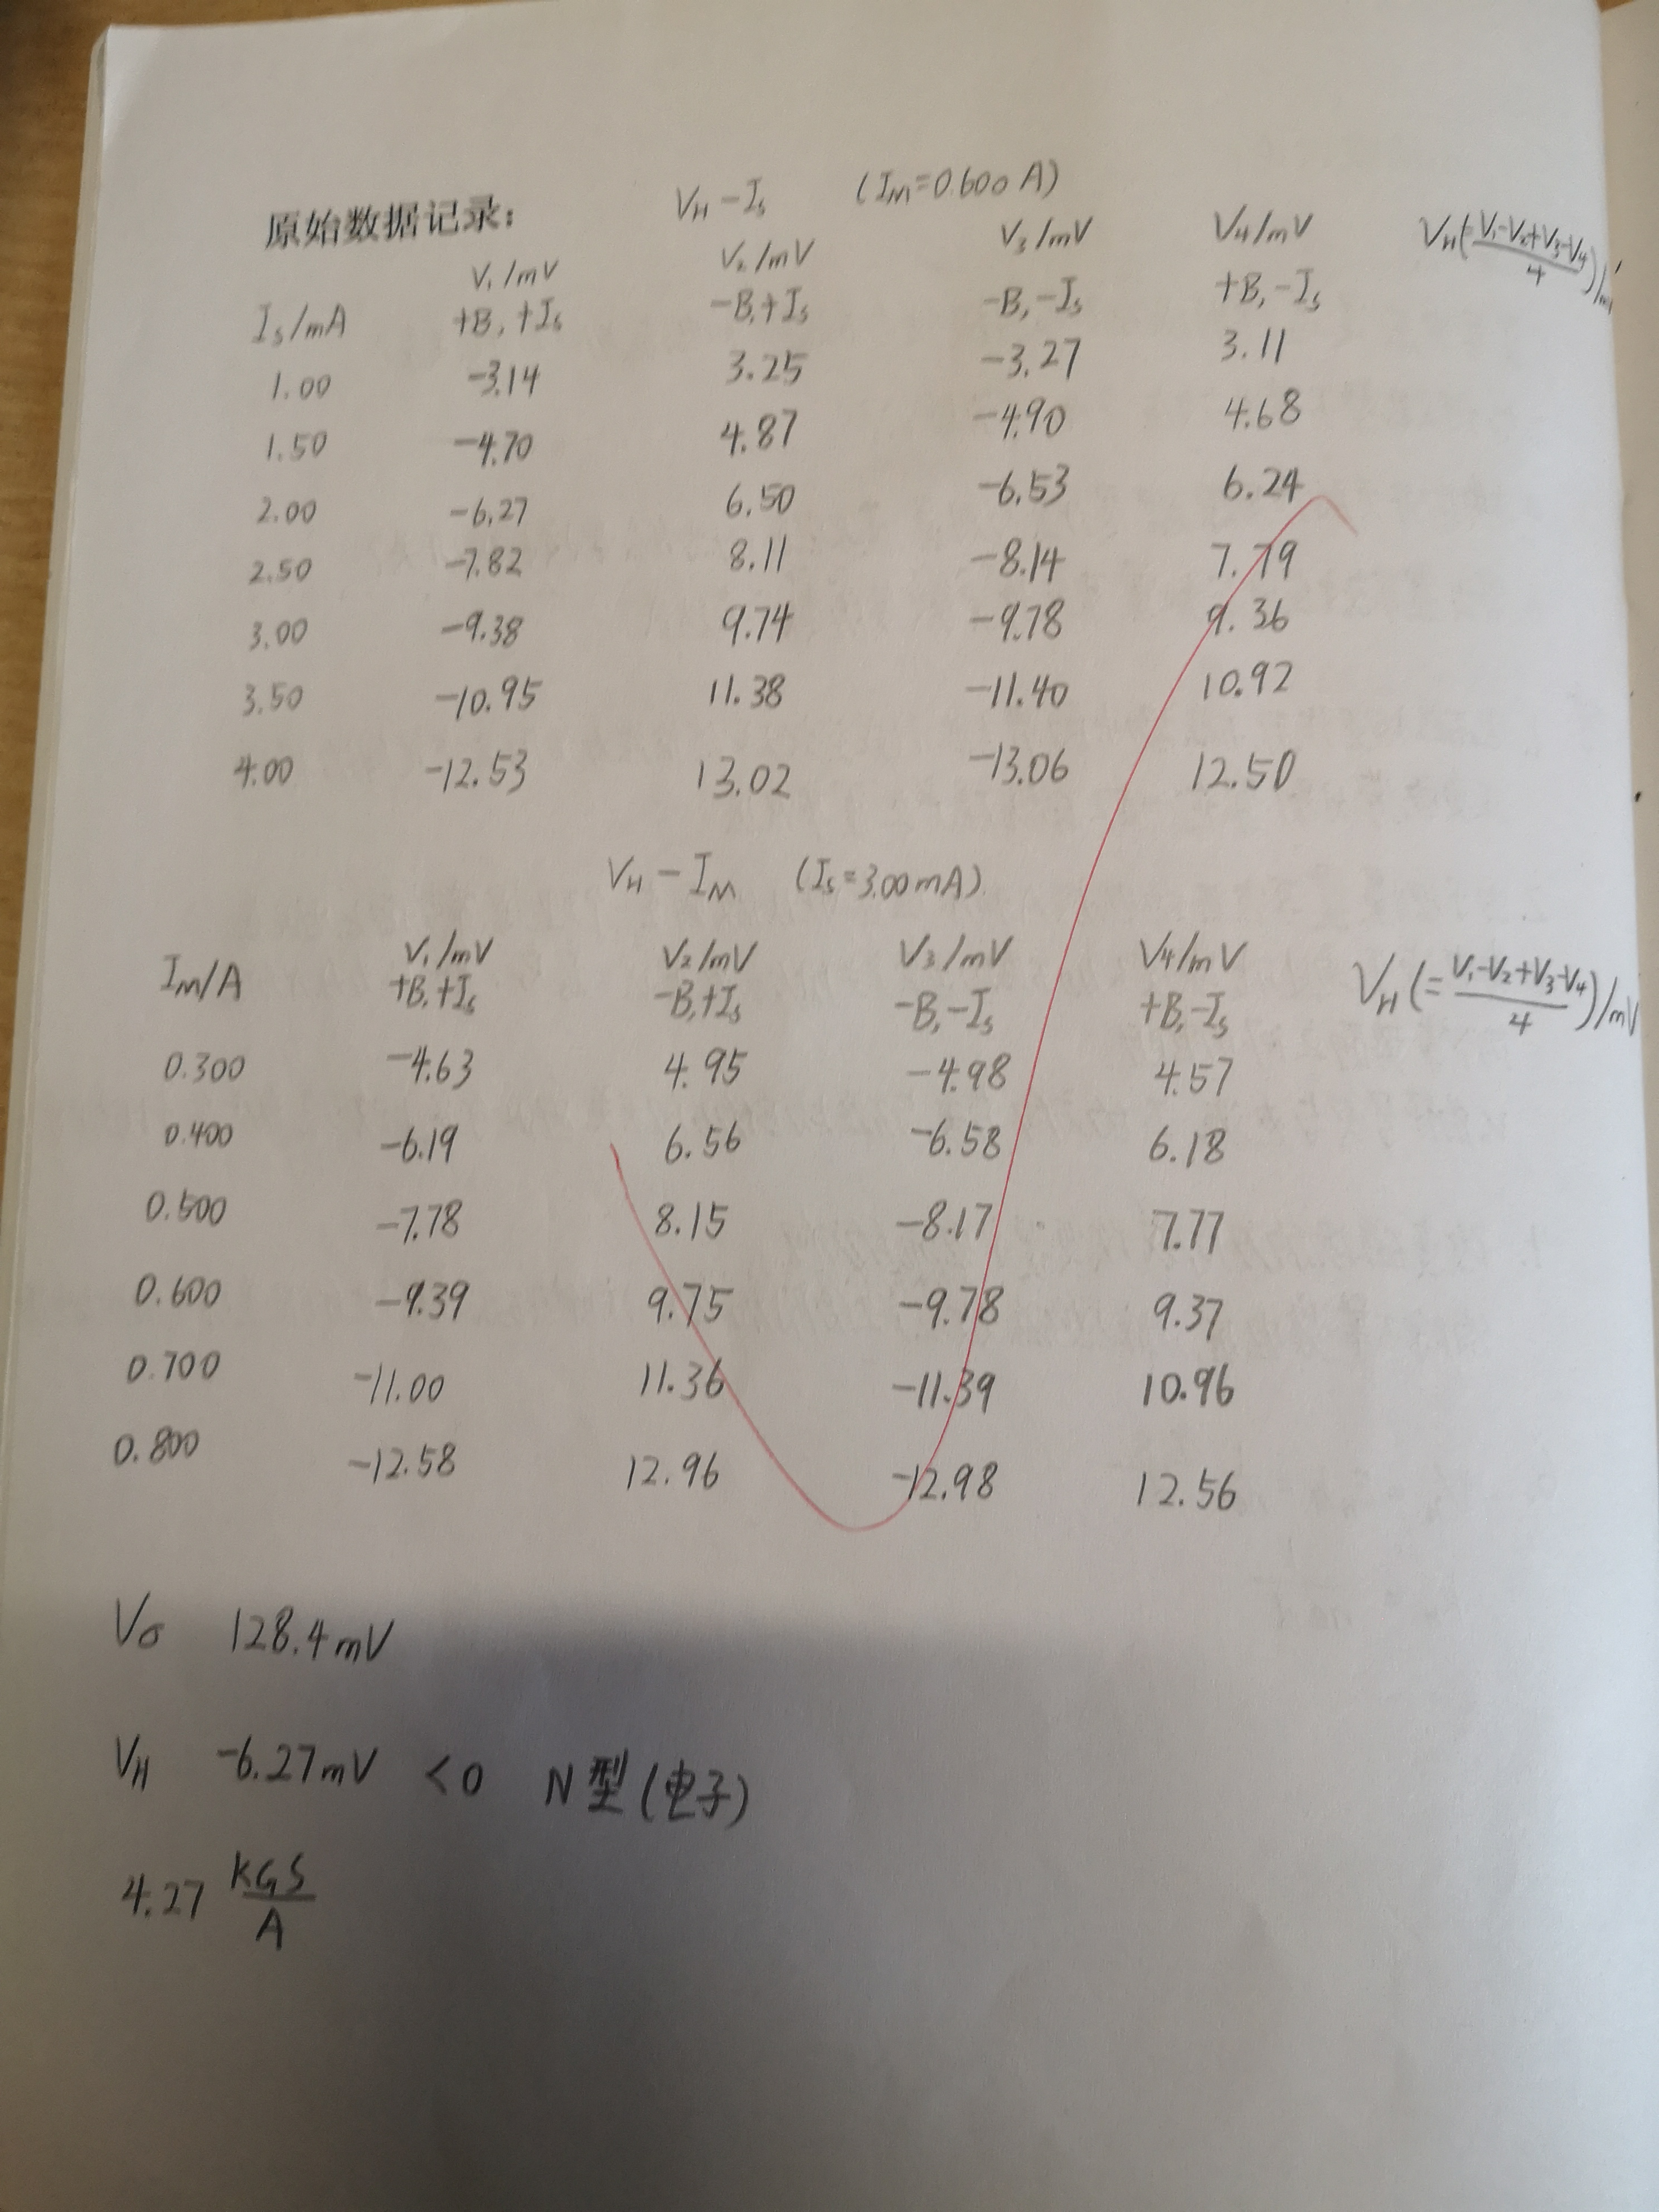 原始数据记录: V_H - I_s (I_M = 0.600 A)
I_s/mA V₁/mV +B, +I_s V₂/mV -B, +I_s V₃/mV -B, -I_s V₄/mV +B, -I_s V_H(= (V₁-V₂+V₃-V₄)/4)/m
1.00 -3.14 3.25 -3.27 3.11
1.50 -4.70 4.87 -4.90 4.68
2.00 -6.27 6.50 -6.53 6.24
2.50 -7.82 8.11 -8.14 7.79
3.00 -9.38 9.74 -9.78 9.36
3.50 -10.95 11.38 -11.40 10.92
4.00 -12.53 13.02 -13.06 12.50
V_H - I_M (I_s = 3.00 mA)
I_M/A V₁/mV +B, +I_s V₂/mV -B, +I_s V₃/mV -B, -I_s V₄/mV +B, -I_s V_H(= (V₁-V₂+V₃-V₄)/4)/mV
0.300 -4.63 4.95 -4.98 4.57
0.400 -6.19 6.56 -6.58 6.18
0.500 -7.78 8.15 -8.17 7.77
0.600 -9.39 9.75 -9.78 9.37
0.700 -11.00 11.36 -11.39 10.96
0.800 -12.58 12.96 -12.98 12.56
Vσ 128.4 mV
V_H -6.27 mV < 0 N型(电子)
4.27 KGS/A